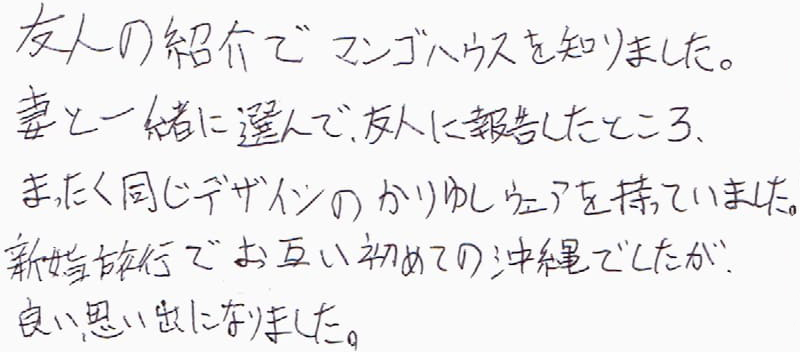 友人の紹介でマンゴハウスを知りました。
妻と一緒に選んで、友人に報告したところ、
まったく同じデザインのかりゆしウェアを持っていました。
新婚旅行でお互い初めての沖縄でしたが、
良い思い出になりました。